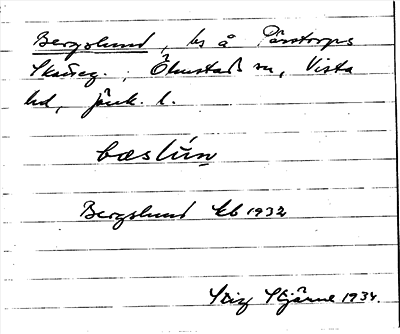 Bergslund, ls å Pärstorps
Skatteg., Ölmstads sn, Vista
hd, Jönk. l.
bæslún
Bergslund Eb 1932
Stig Stjärne 1934.